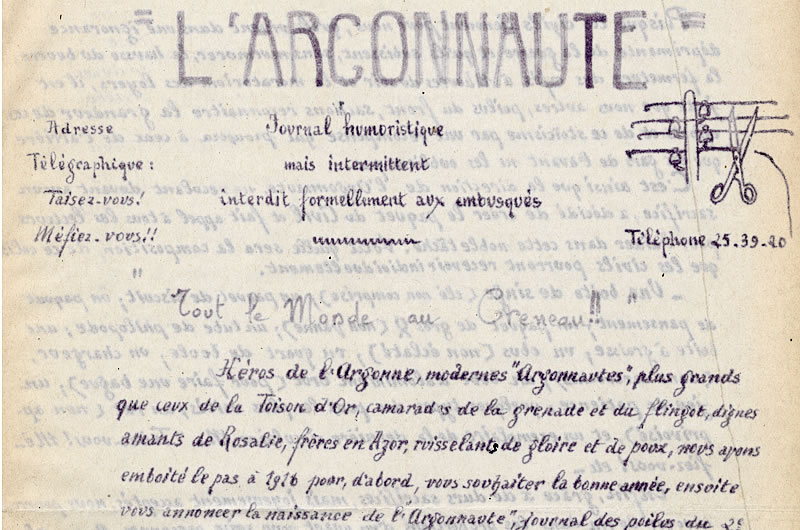 "L'ARGONNAUTE"
Adresse
Télégraphique :
Taisez-vous!
Méfiez-vous!!
Journal humoristique
mais intermittent
interdit formellement aux embusqués
Téléphone 25.39-20
"Tout le Monde au Créneau!!"
Héros de l'Argonne, modernes "Argonnautes", plus grands
que ceux de la Toison d'Or, camarades de la grenade et du flingot, dignes
amants de Rosalie, frères en Azor, ruisselants de gloire et de poux, nous avons
emboité le pas à 1916 pour, d'abord, vous souhaiter la bonne année, ensuite
vous annoncer la naissance de l'"Argonnaute", journal des poilus du 2e